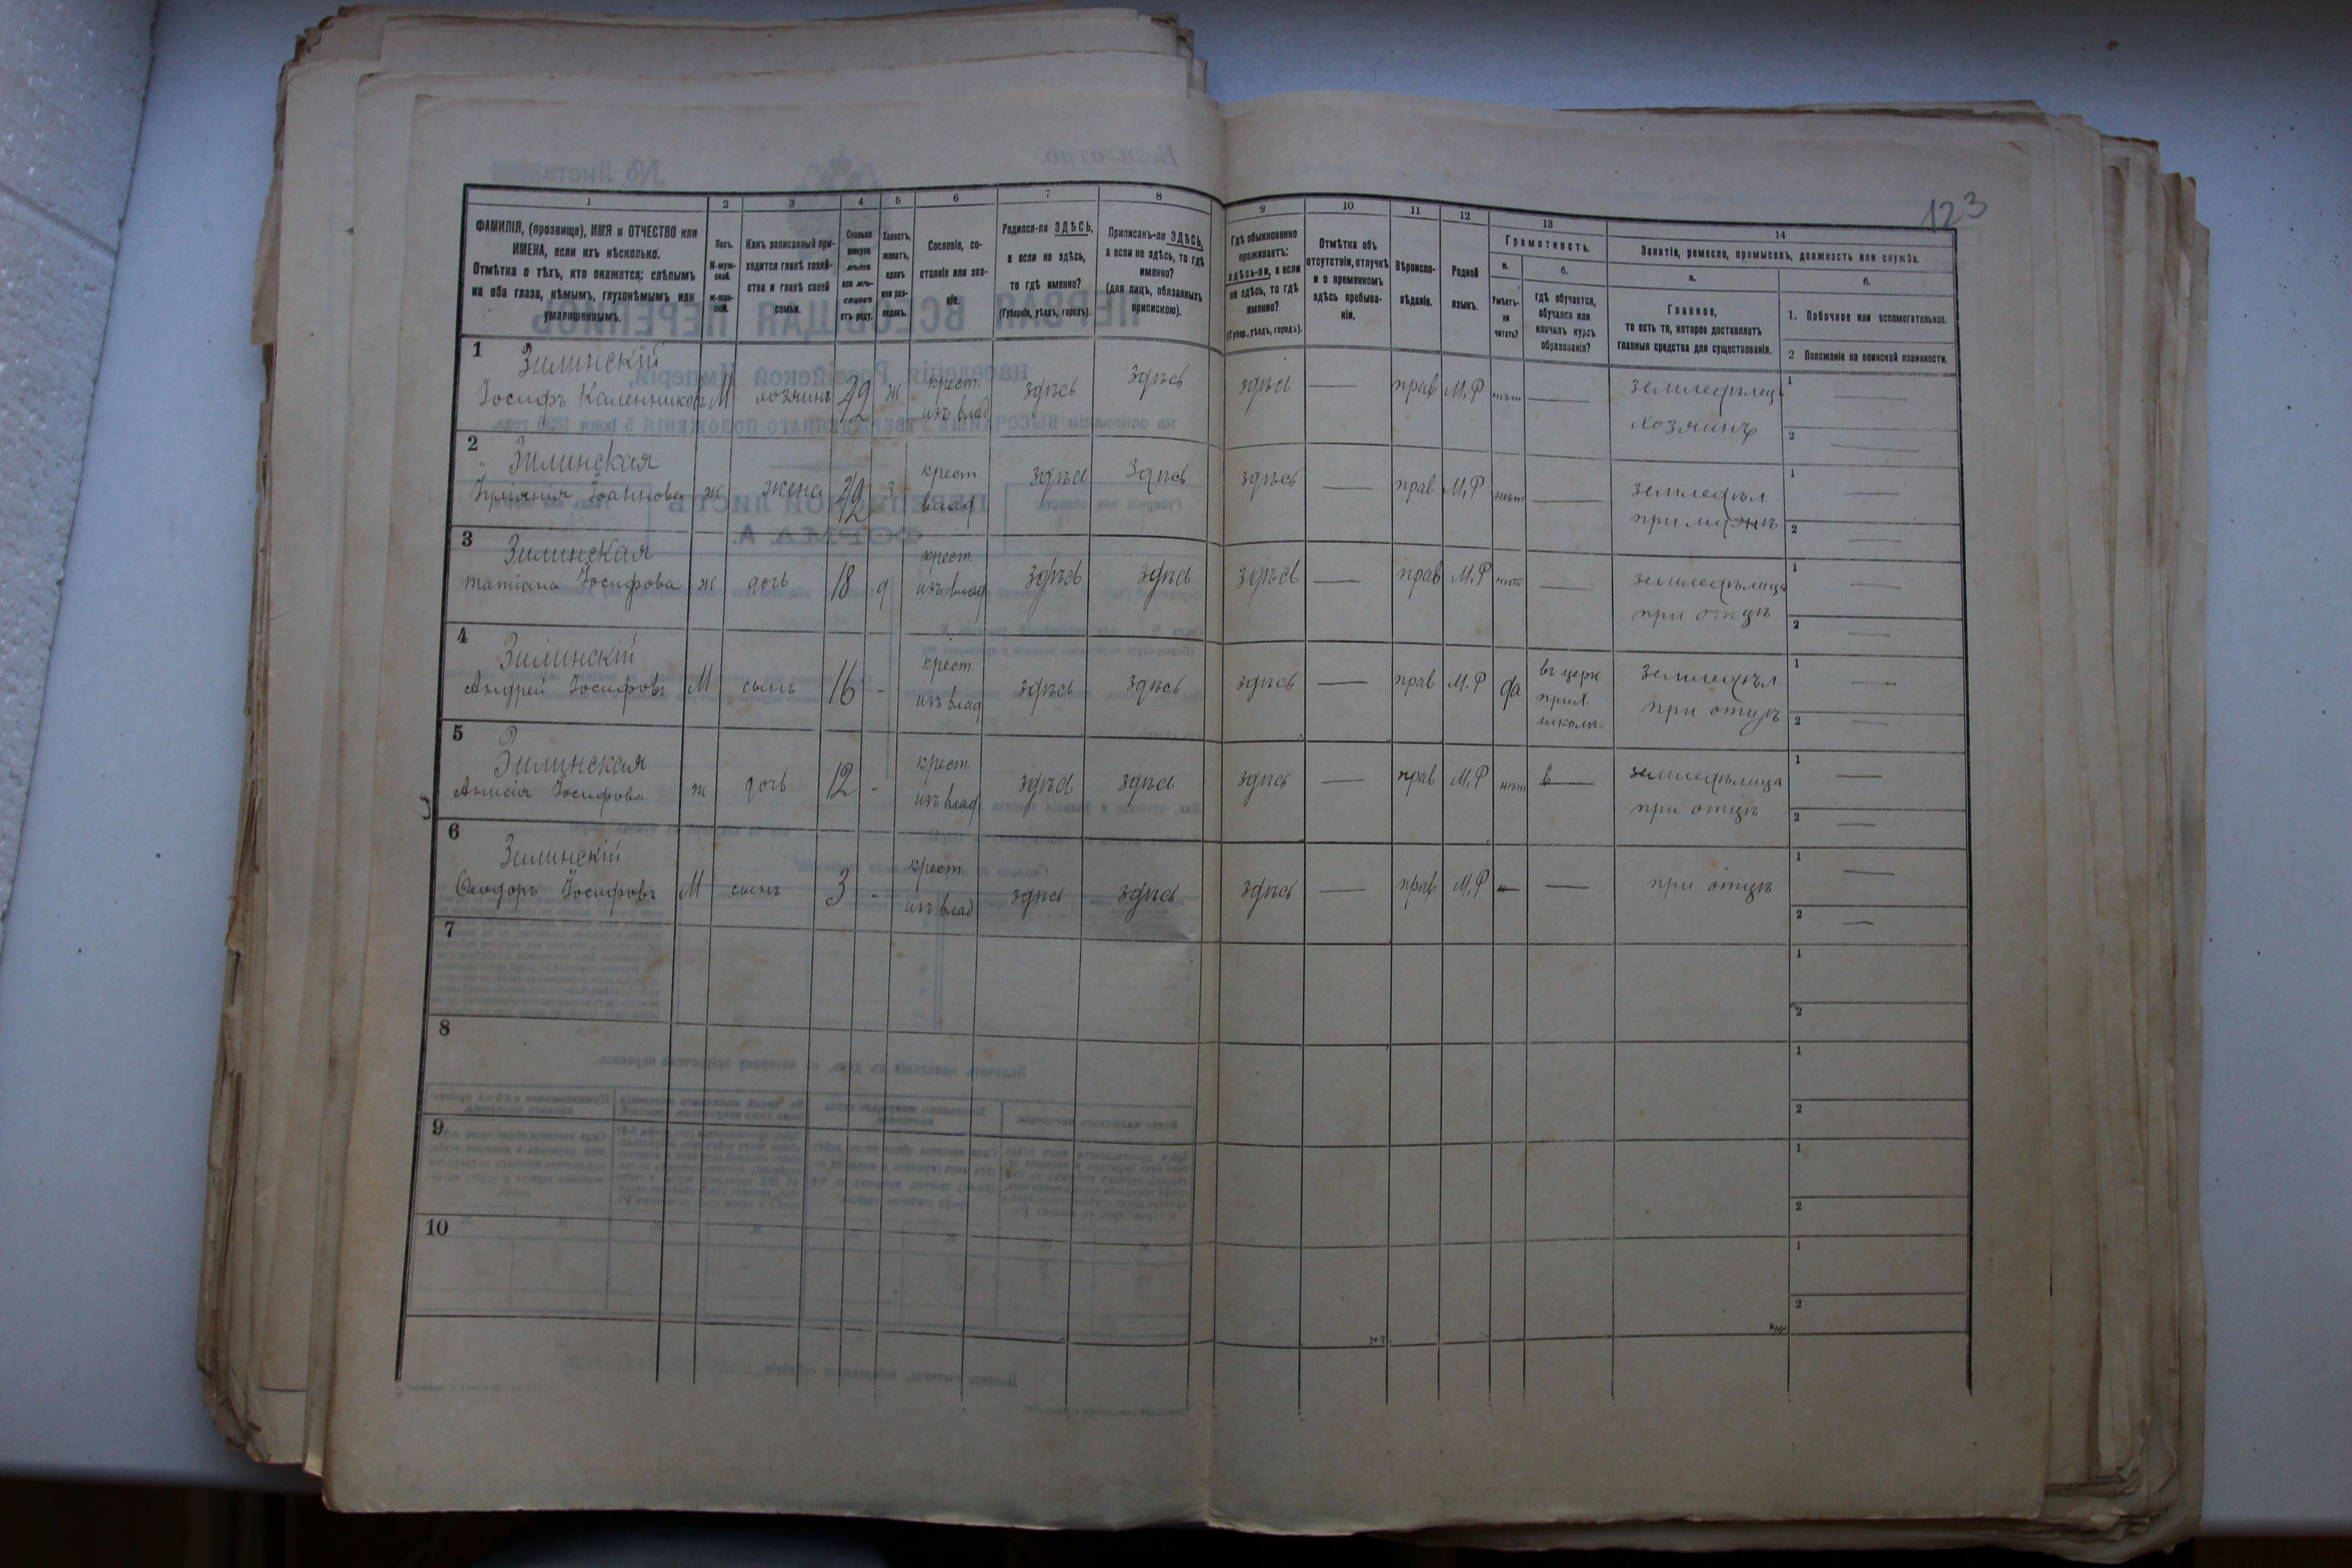 123
1
2
3
4
5
6
7
8
9
10
11
12
13
14
ФАМИЛІЯ, (прозвище), ИМЯ и ОТЧЕСТВО или
ИМЕНА, если ихъ нѣсколько.
Отмѣтка о тѣхъ, кто окажется: слѣпымъ
на оба глаза, нѣмымъ, глухонѣмымъ или
умалишеннымъ.
Полъ.
М-муж-
ской.
ж-жен-
скій.
Какъ записанный при-
ходится главѣ хозяй-
ства и главѣ своей
семьи.
Сколько
минуло
лѣтъ
или мѣ-
сяцевъ
отъ роду.
Холостъ,
женатъ,
вдовъ
или раз-
веденъ.
Сословіе, со-
стояніе или зва-
ніе.
Родился-ли ЗДѢСЬ,
а если не здѣсь,
то гдѣ именно?
(Губернія, уѣздъ, городъ).
Приписанъ-ли ЗДѢСЬ,
а если не здѣсь, то гдѣ
именно?
(для лицъ, обязанныхъ
припискою).
Гдѣ обыкновенно
проживаетъ:
здѣсь-ли, а если
не здѣсь, то гдѣ
именно?
(Губер., уѣздъ, городъ).
Отмѣтка объ
отсутствіи, отлучкѣ
и о временномъ
здѣсь пребыва-
ніи.
Вѣроиспо-
вѣданіе.
Родной
языкъ.
Грамотность.
а.
Умѣетъ-
ли
читать?
б.
гдѣ обучается,
обучался или
кончилъ курсъ
образованія?
Занятіе, ремесло, промыселъ, должность или служба.
а.
Главное,
то есть то, которое доставляетъ
главныя средства для существованія.
б.
1. Побочное или вспомогательное.
2 Положеніе по воинской повинности.
1 Зилинскій
Іосифъ Каленниковъ М хозяинъ 42 ж крест. изъ влад здѣсь здѣсь здѣсь — прав М.Р нѣт — земледѣлецъ хозяинъ 1 — 2 —
2 Зилинская
Іоаннова ж жена 42 з крест. влад здѣсь здѣсь здѣсь — прав М.Р нѣт — земледѣл при мужѣ 1 — 2 —
3 Зилинская
Татіана Іосифова ж дочь 18 д крест. изъ влад здѣсь здѣсь здѣсь — прав М.Р нѣт — земледѣлица при отцѣ 1 — 2 —
4 Зилинскій
Андрей Іосифовъ М сынъ 16 - крест. изъ влад здѣсь здѣсь здѣсь — прав М.Р да въ церк прих. школѣ. земледѣл. при отцѣ 1 — 2 —
5 Зилинская
Анисія Іосифова ж дочь 12 - крест. изъ влад здѣсь здѣсь здѣсь — прав М.Р нѣт — земледѣлица при отцѣ 1 — 2 —
6 Зилинскій
Ѳеодоръ Іосифовъ М сынъ 3 - крест. изъ влад здѣсь здѣсь здѣсь — прав М.Р — — при отцѣ 1 — 2 —
7 1 2
8 1 2
9 1 2
10 1 2